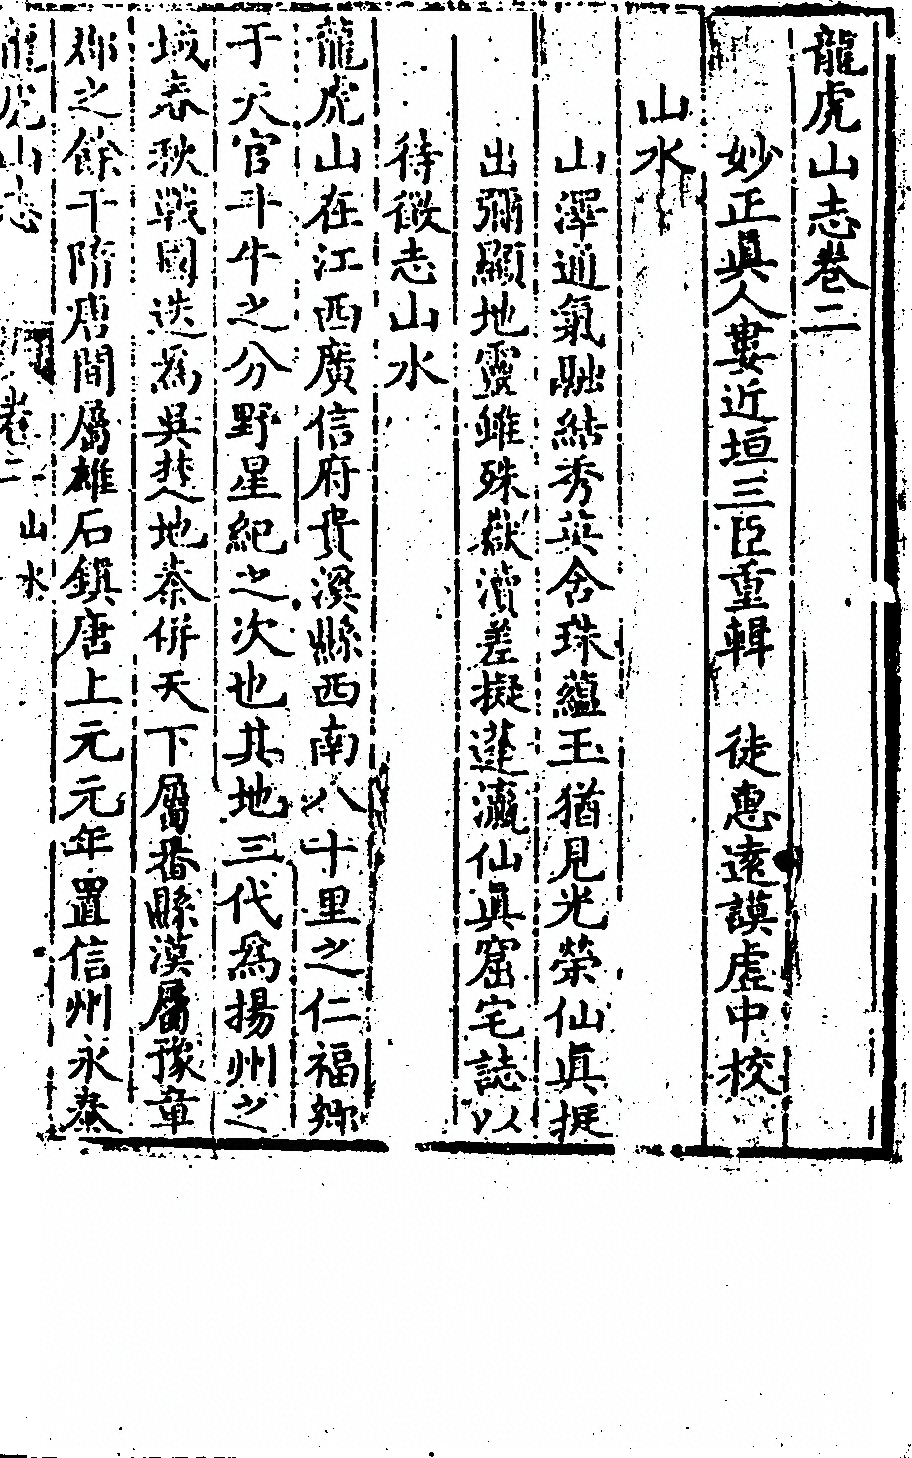 龍虎山志卷二
妙正眞人婁近垣三臣重輯 徒惠遠謨虛中校
山水
山澤通氣融結秀英含珠蘊玉猶見光榮仙眞挺
出彌顯地靈雖殊嶽瀆差擬蓬瀛仙眞窟宅誌以
待徵志山水
龍虎山在江西廣信府貴溪縣西南八十里之仁福鄉
于天官斗牛之分野星紀之次也其地三代爲揚州之
域春秋戰國迭爲吳楚地秦併天下屬番縣漢屬豫章
鄉之餘干隋唐間屬雄石鎮唐上元元年置信州永泰
龍虎山志 卷二 山水